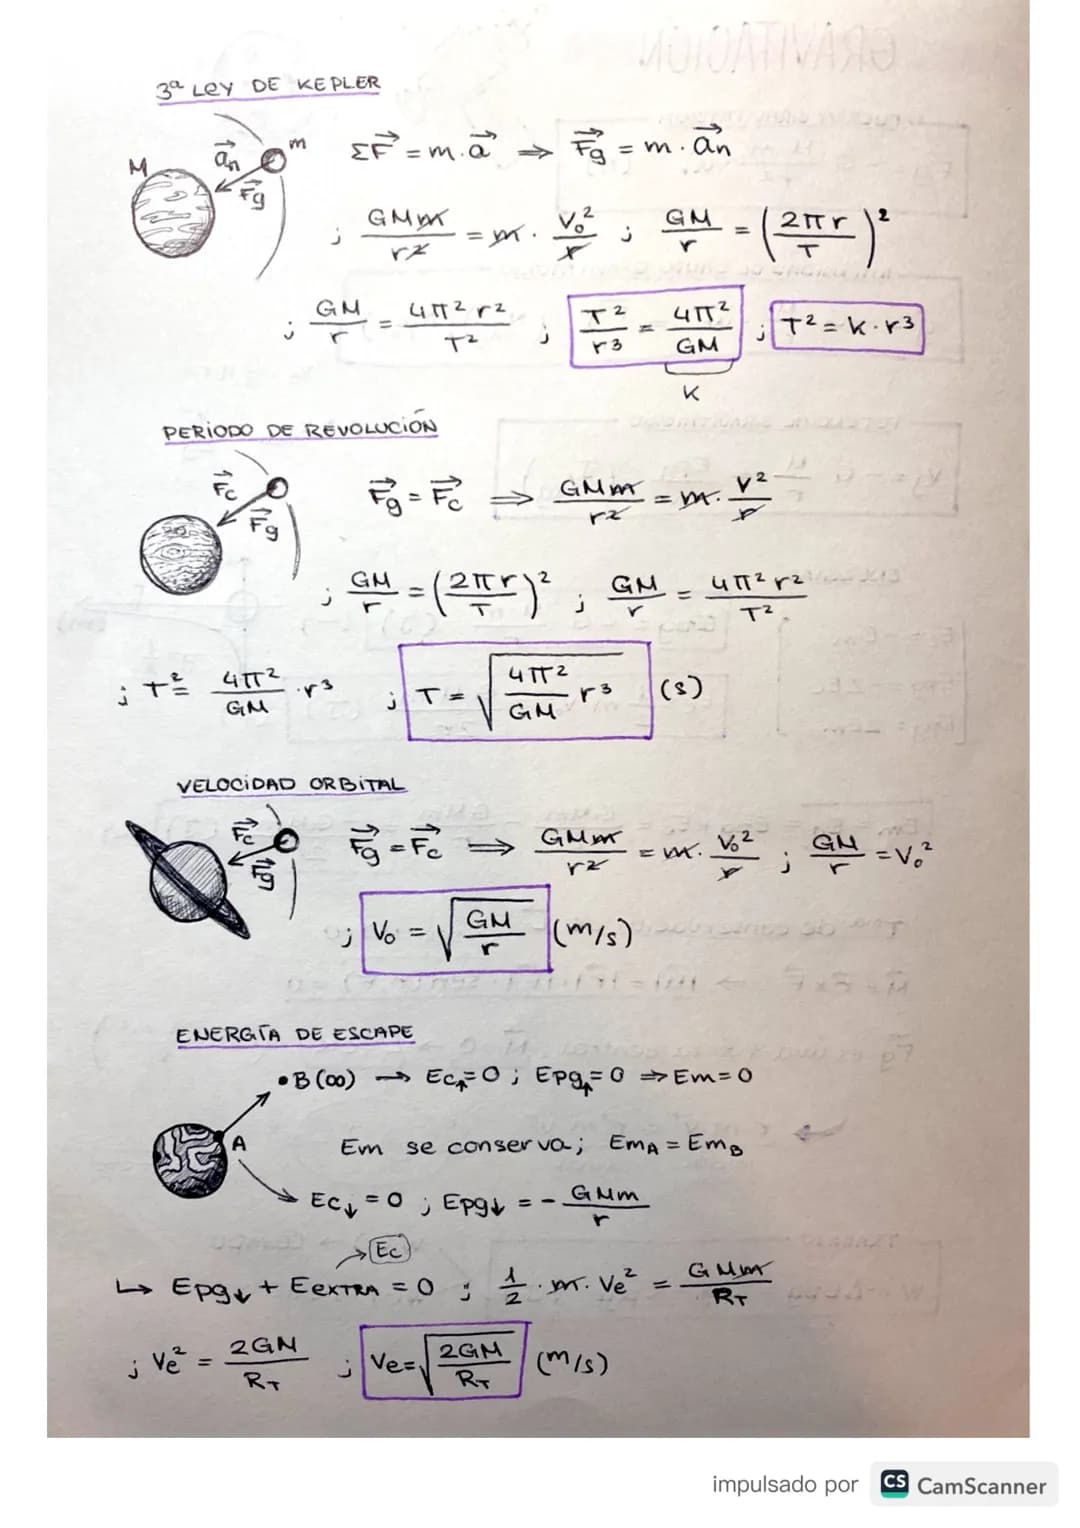 3ª LEY DE KEPLER
M a⃗n m F⃗g ΣF⃗ = m.a⃗ ⇒ F⃗g = m . a⃗n
; GMm/r² = m . Vo²/r ; GM/r = (2πr/T)²
; GM/r = 4π² r²/T² ; T²/r³ = 4π²/GM ; T² = k.r³
K
PERIODO DE REVOLUCIÓN
F⃗c F⃗g F⃗g = F⃗c ⇒ GMm/r² = m. V²/r
; GM/r = (2πr/T)² ; GM/r = 4π² r²/T²
; T² = 4π²/GM .r³ ; T = √(4π²/GM r³) (s)
VELOCIDAD ORBITAL
F⃗c F⃗g F⃗g = F⃗c ⇒ GMm/r² = m. Vo²/r ; GM/r = Vo²
; Vo = √(GM/r) (m/s)
ENERGÍA DE ESCAPE
• B (∞) → Ec↑ = 0 ; Epg↑ = 0 ⇒ Em = 0
A Em se conserva; EmA = EmB
Ec↓ = 0 ; Epg↓ = - GMm/r
→ Ec
↳ Epg↓ + EEXTRA = 0 ; 1/2 . m. Ve² = GMm/RT
; Ve² = 2GM/RT ; Ve = √(2GM/RT) (m/s)
impulsado por CS CamScanner